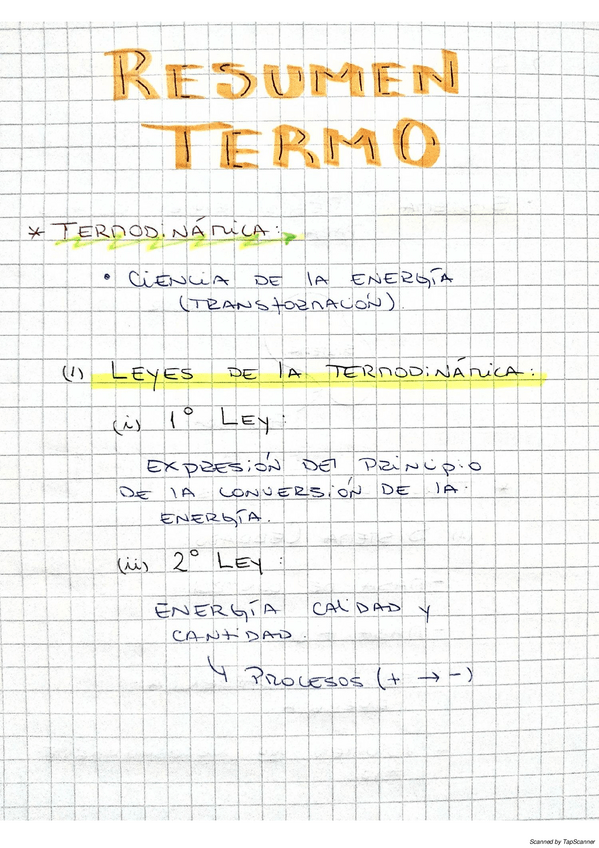 RESUMEN
TERMO
* TERMODINÁMICA:
• CIENCIA DE LA ENERGÍA
(TRANSFORMACIÓN).
(1) LEYES DE LA TERMODINÁMICA:
(i) 1° LEY:
EXPRESIÓN DEL PRINCIPIO
DE LA CONVERSIÓN DE LA
ENERGÍA.
(ii) 2° LEY:
ENERGÍA CALIDAD Y
CANTIDAD.
↳ PROCESOS (+ → -)
Scanned by TapScanner